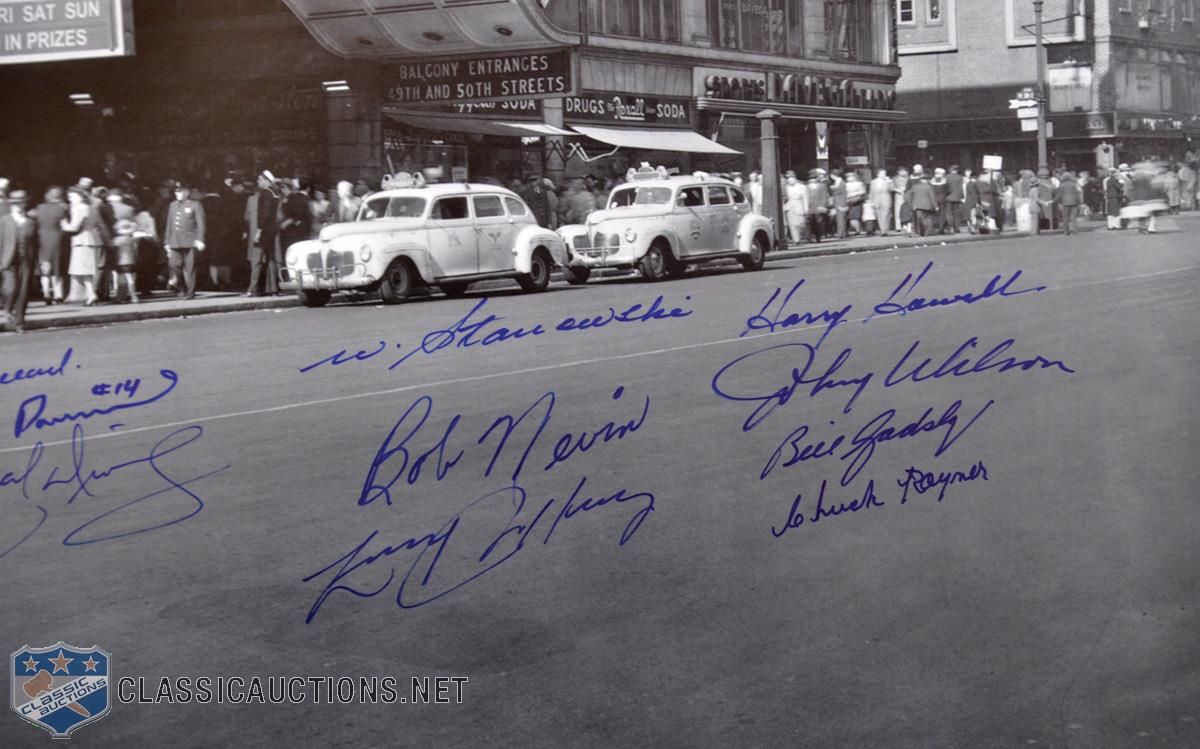 RI SAT SUN
IN PRIZES
BALCONY ENTRANCES
49TH AND 50TH STREETS
SODA
DRUGS The Rexall Store SODA
DRUGS
W. Stanowski
Harry Howell
#14
Bob Nevin
Johnny Wilson
Bill Gadsby
Chuck Rayner
CLASSIC
AUCTIONS
CLASSICAUCTIONS.NET